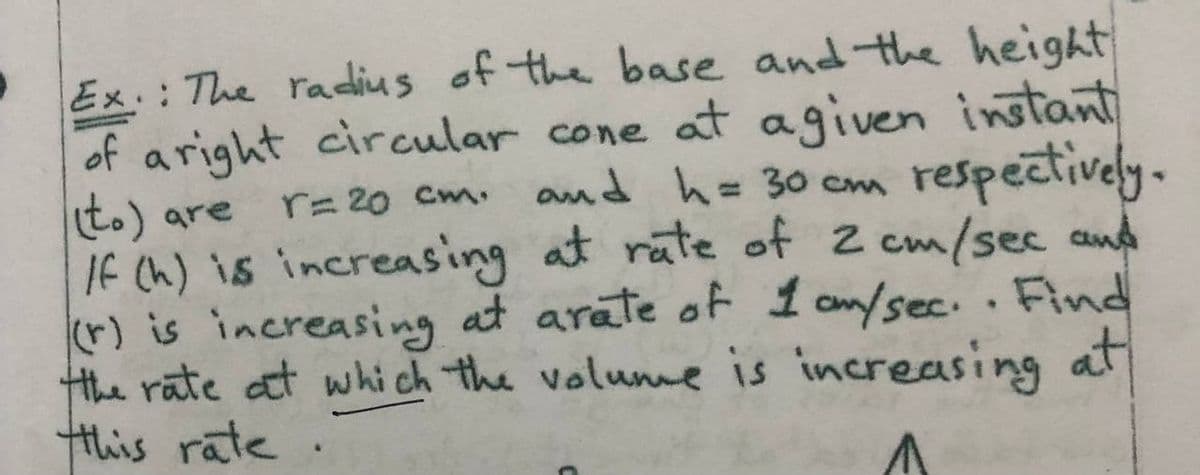 Ex.: The radius of the base and the height
of aright circular cone at agiven instant
(to) are r=20 cm. and h=30 cm respectively.
If (h) is increasing at rate of 2 cm/sec and
(r) is increasing at arate of 1 cm/sec. . Find
the rate at which the volume is increasing at
this rate .